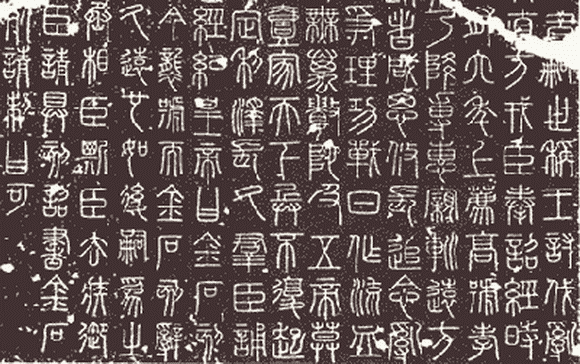 昔嗣世稱王討伐亂
直方戎臣奉詔經時
有六年上薦高號孝
乃降專惠親巡遠方
者咸思攸長追念亂
爭理功戰日作流血
無萬數陀及五帝莫
壹家天下兵不復起
定利澤長久群臣誦
經紀皇帝曰金石刻
今襲號而金石刻辭
久遠也如後嗣為之
丞相臣斯臣去疾御
臣請具刻詔書金石
請制曰可